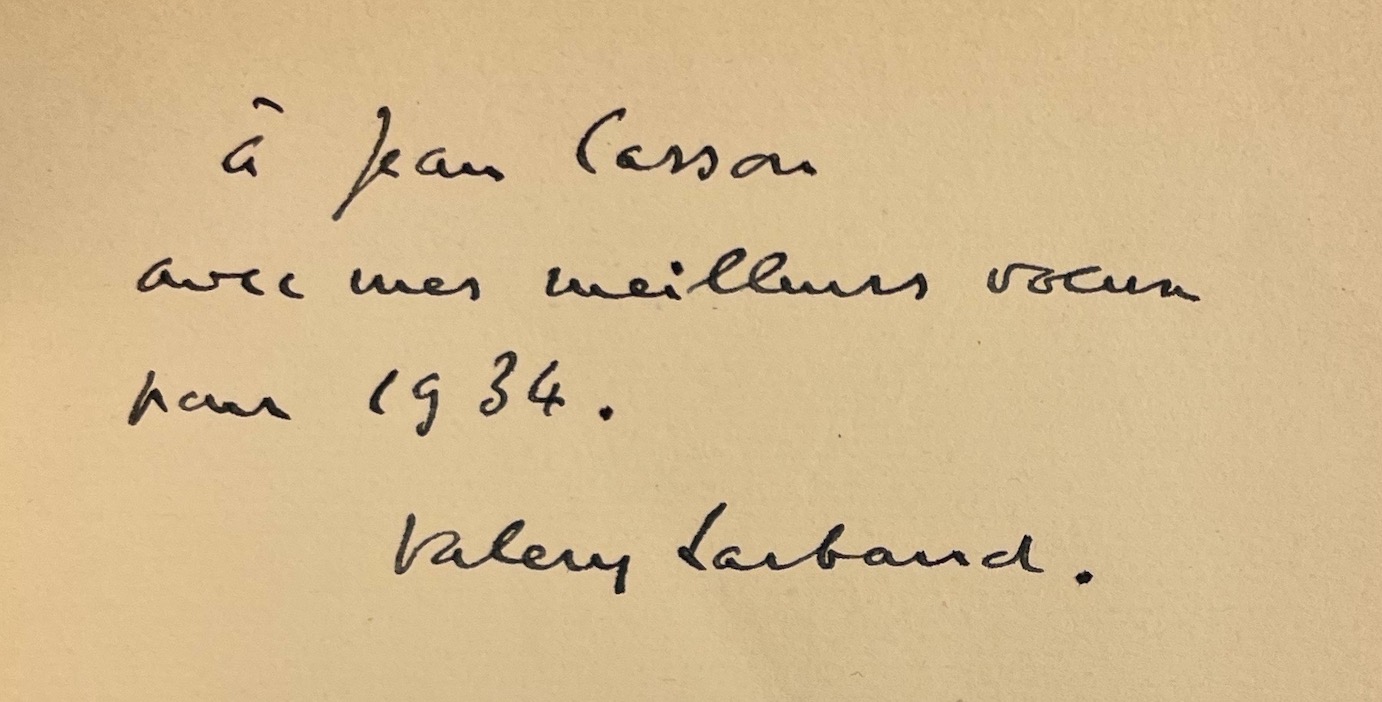 à Jean Cassou
avec mes meilleurs vœux
pour 1934.
Valery Larbaud.